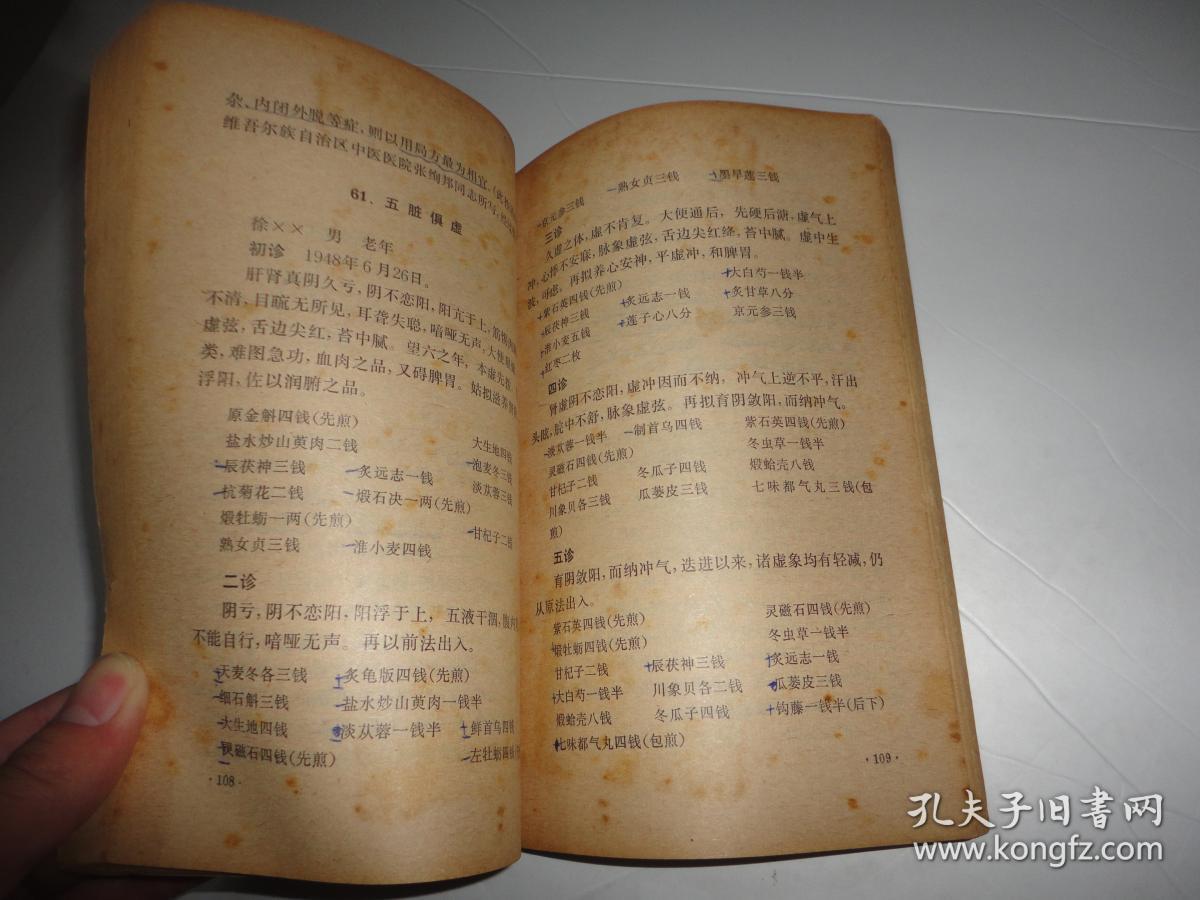 杂、内闭外脱等症，则以用局方最为相宜。
维吾尔族自治区中医医院张绚邦同志所写，
61．五脏俱虚
徐×× 男 老年
初诊 1948年6月26日。
肝肾真阴久亏，阴不恋阳，阳亢于上，
不清，目䀮无所见，耳聋失聪，喑哑无声，大便
虚弦，舌边尖红，苔中腻。望六之年，本虚先
类，难图急功，血肉之品，又碍脾胃。姑拟滋养
浮阳，佐以润腑之品。
原金斛四钱(先煎)
盐水炒山萸肉二钱 大生地四钱
辰茯神三钱 炙远志一钱 泡麦冬三钱
杭菊花二钱 煅石决一两(先煎) 淡苁蓉三钱
煅牡蛎一两(先煎) 甘杞子二钱
熟女贞三钱 淮小麦四钱
二诊
阴亏，阴不恋阳，阳浮于上，五液干涸，
不能自行，喑哑无声。再以前法出入。
天麦冬各三钱 炙龟版四钱(先煎)
细石斛三钱 盐水炒山萸肉一钱半
大生地四钱 淡苁蓉一钱半 鲜首乌四钱
灵磁石四钱(先煎) 左牡蛎四钱
·108·
京元参三钱 熟女贞三钱 墨旱莲三钱
三诊
久虚之体，虚不肯复。大便通后，先硬后溏，虚气上
冲，心悸不安寐，脉象虚弦，舌边尖红绛，苔中腻。虚中生
波，可虑。再拟养心安神，平虚冲，和脾胃。
紫石英四钱(先煎) 大白芍一钱半
辰茯神三钱 炙远志一钱 炙甘草八分
淮小麦五钱 莲子心八分 京元参三钱
红枣二枚
四诊
肾虚阴不恋阳，虚冲因而不纳，冲气上逆不平，汗出
头眩，脘中不舒，脉象虚弦。再拟育阴敛阳，而纳冲气。
淡苁蓉一钱半 制首乌四钱 紫石英四钱(先煎)
灵磁石四钱(先煎) 冬虫草一钱半
甘杞子二钱 冬瓜子四钱 煅蛤壳八钱
川象贝各三钱 瓜蒌皮三钱 七味都气丸三钱(包
煎)
五诊
育阴敛阳，而纳冲气，迭进以来，诸虚象均有轻减，仍
从原法出入。
紫石英四钱(先煎) 灵磁石四钱(先煎)
煅牡蛎四钱(先煎) 冬虫草一钱半
甘杞子二钱 辰茯神三钱 炙远志一钱
大白芍一钱半 川象贝各二钱 瓜蒌皮三钱
煅蛤壳八钱 冬瓜子四钱 钩藤一钱半(后下)
七味都气丸四钱(包煎)
·109·
孔夫子旧书网
www.kongfz.com